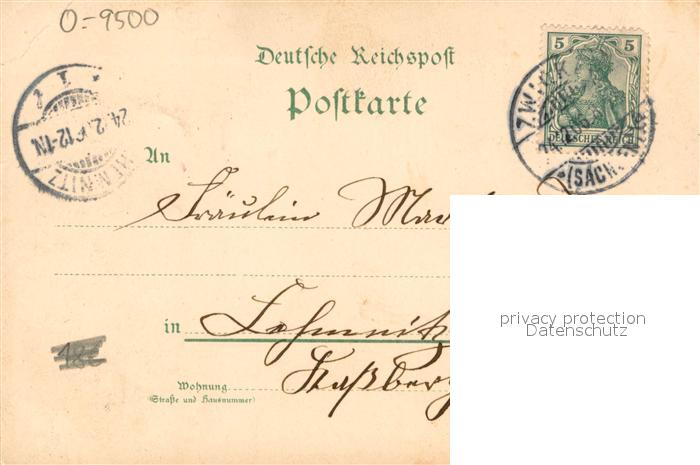 O-9500
Deutsche Reichspost
Postkarte
5 5
DEUTSCHES REICH
ZWICKAU
(SACHSEN)
24.2. 12-1N
CHEMNITZ
An
Fräulein
in Chemnitz
privacy protection
Datenschutz
Wohnung
(Straße und Hausnummer)
Kaßberg
18c